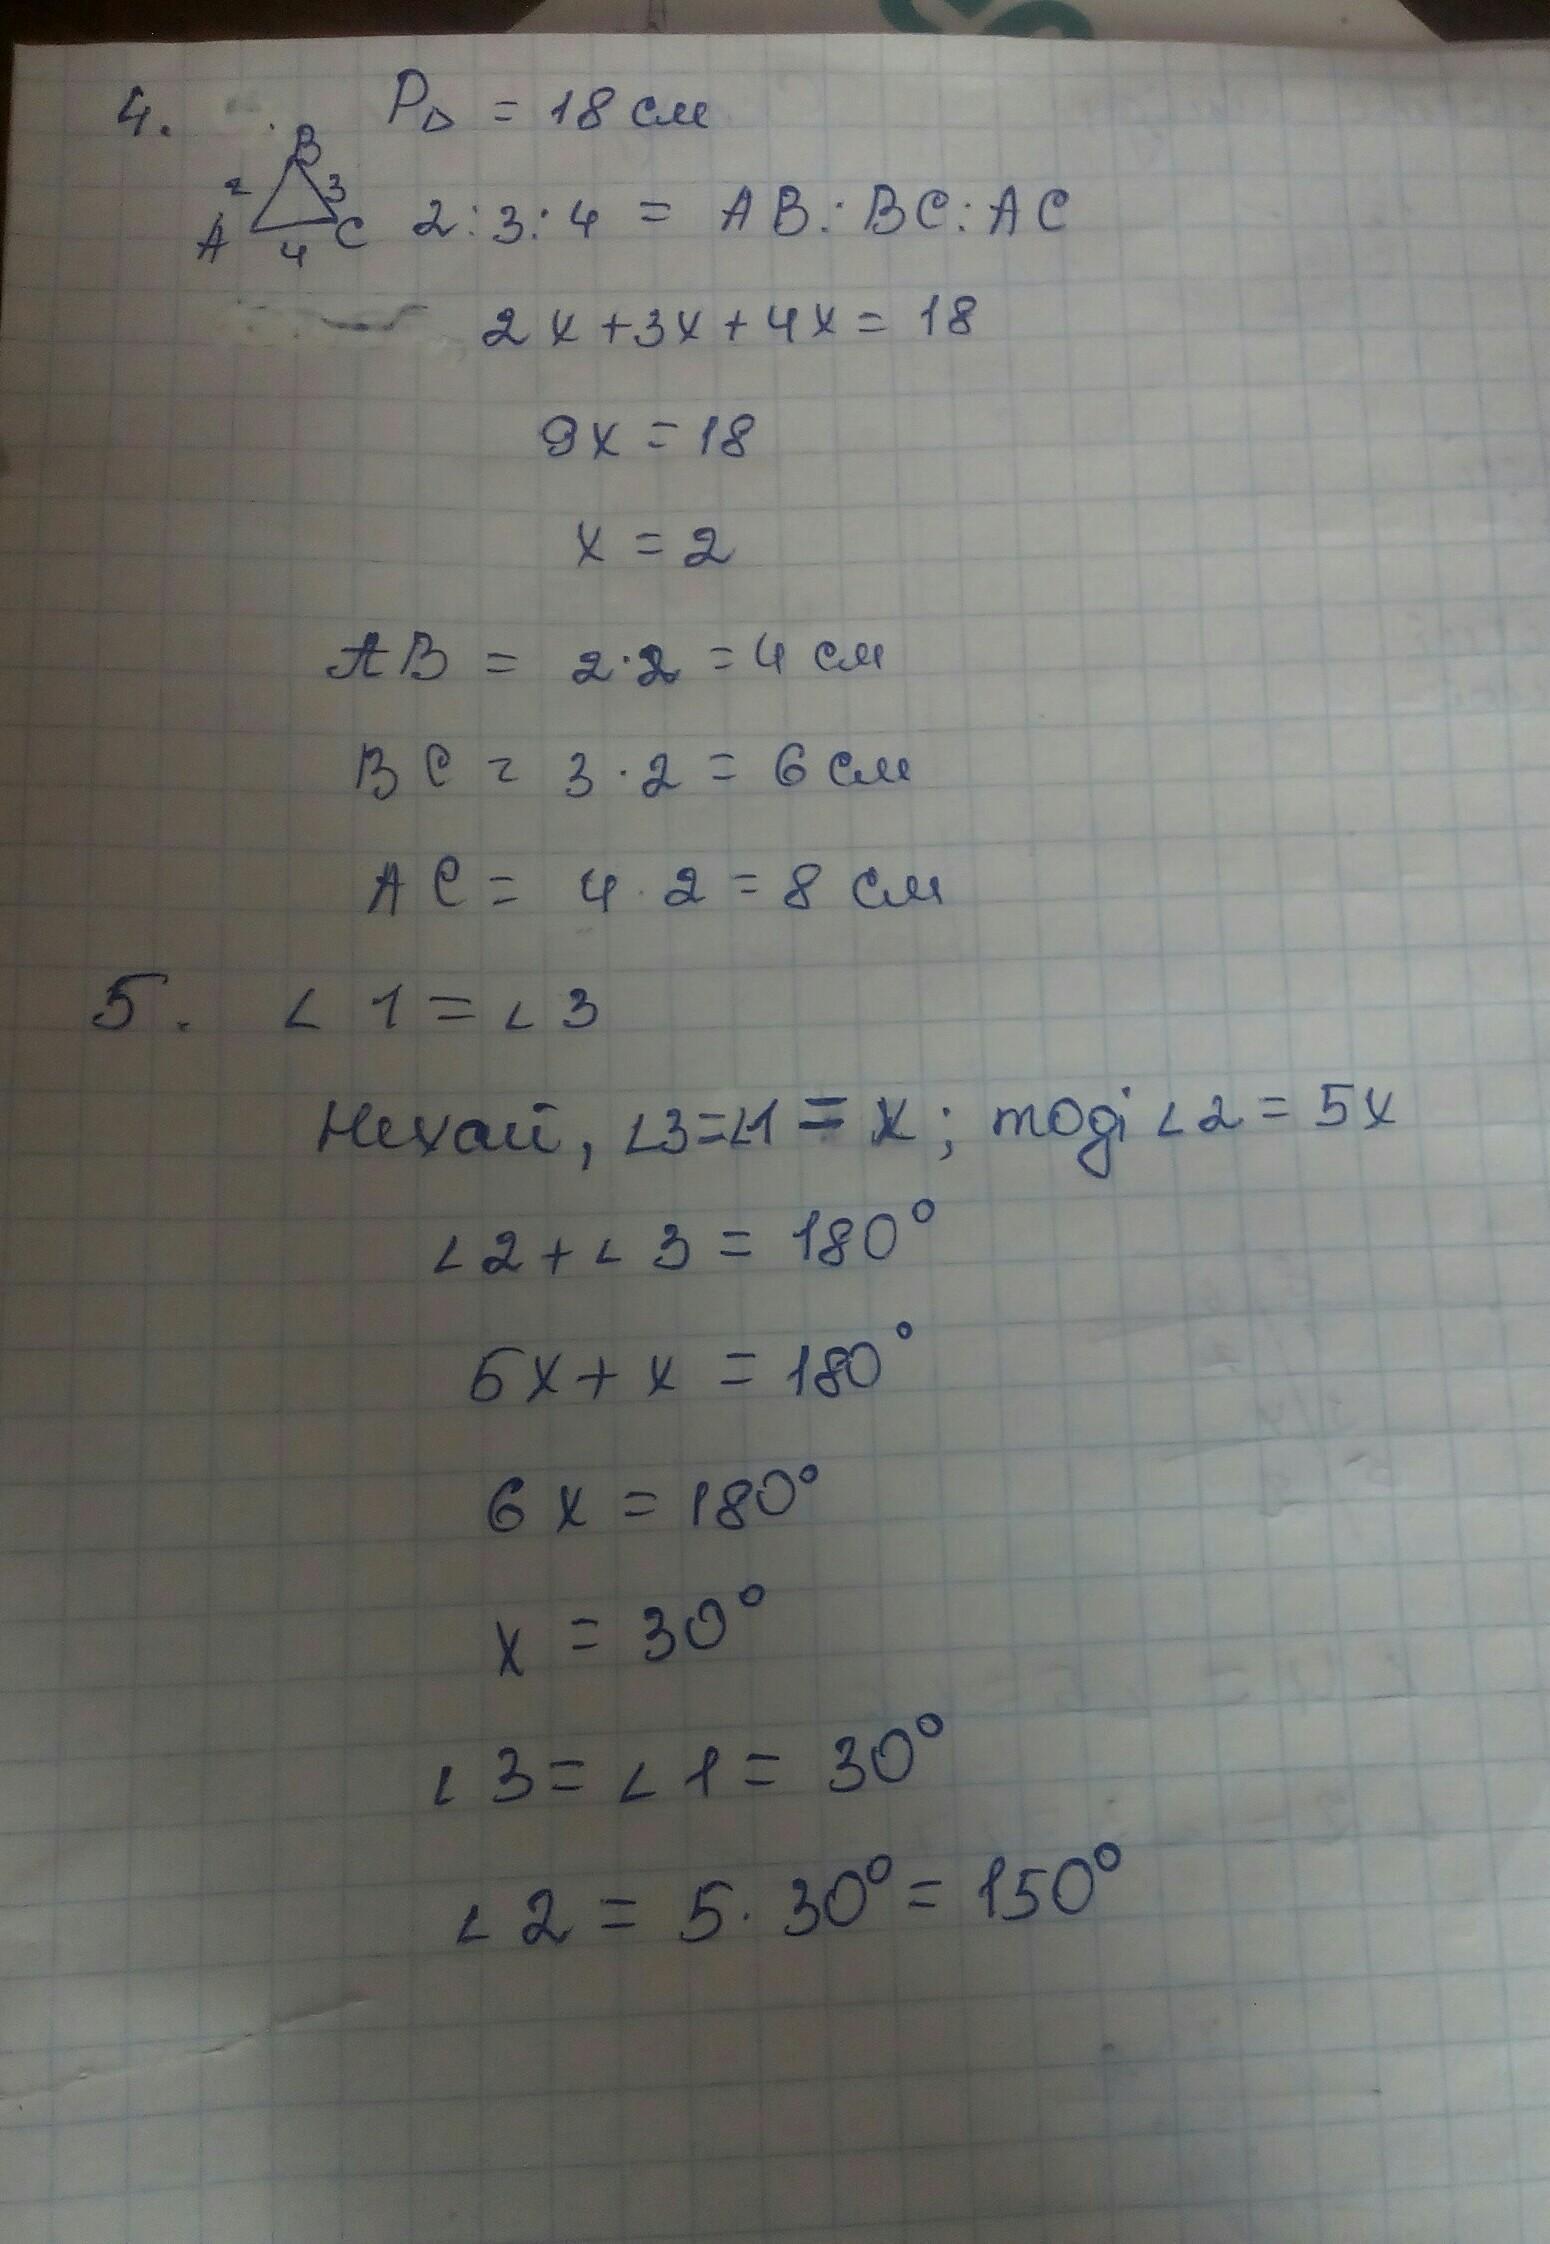 4. P△ = 18 см
B
2 3
A 4 C 2:3:4 = AB:BC:AC
2x+3x+4x=18
9x=18
x=2
AB = 2·2 =4 см
BC = 3·2 = 6 см
AC = 4·2=8 см
5. ∠1=∠3
Нехай, ∠3=∠1=x; тоді ∠2=5x
∠2+∠3=180°
5x+x=180°
6x=180°
x=30°
∠3=∠1=30°
∠2=5·30°=150°